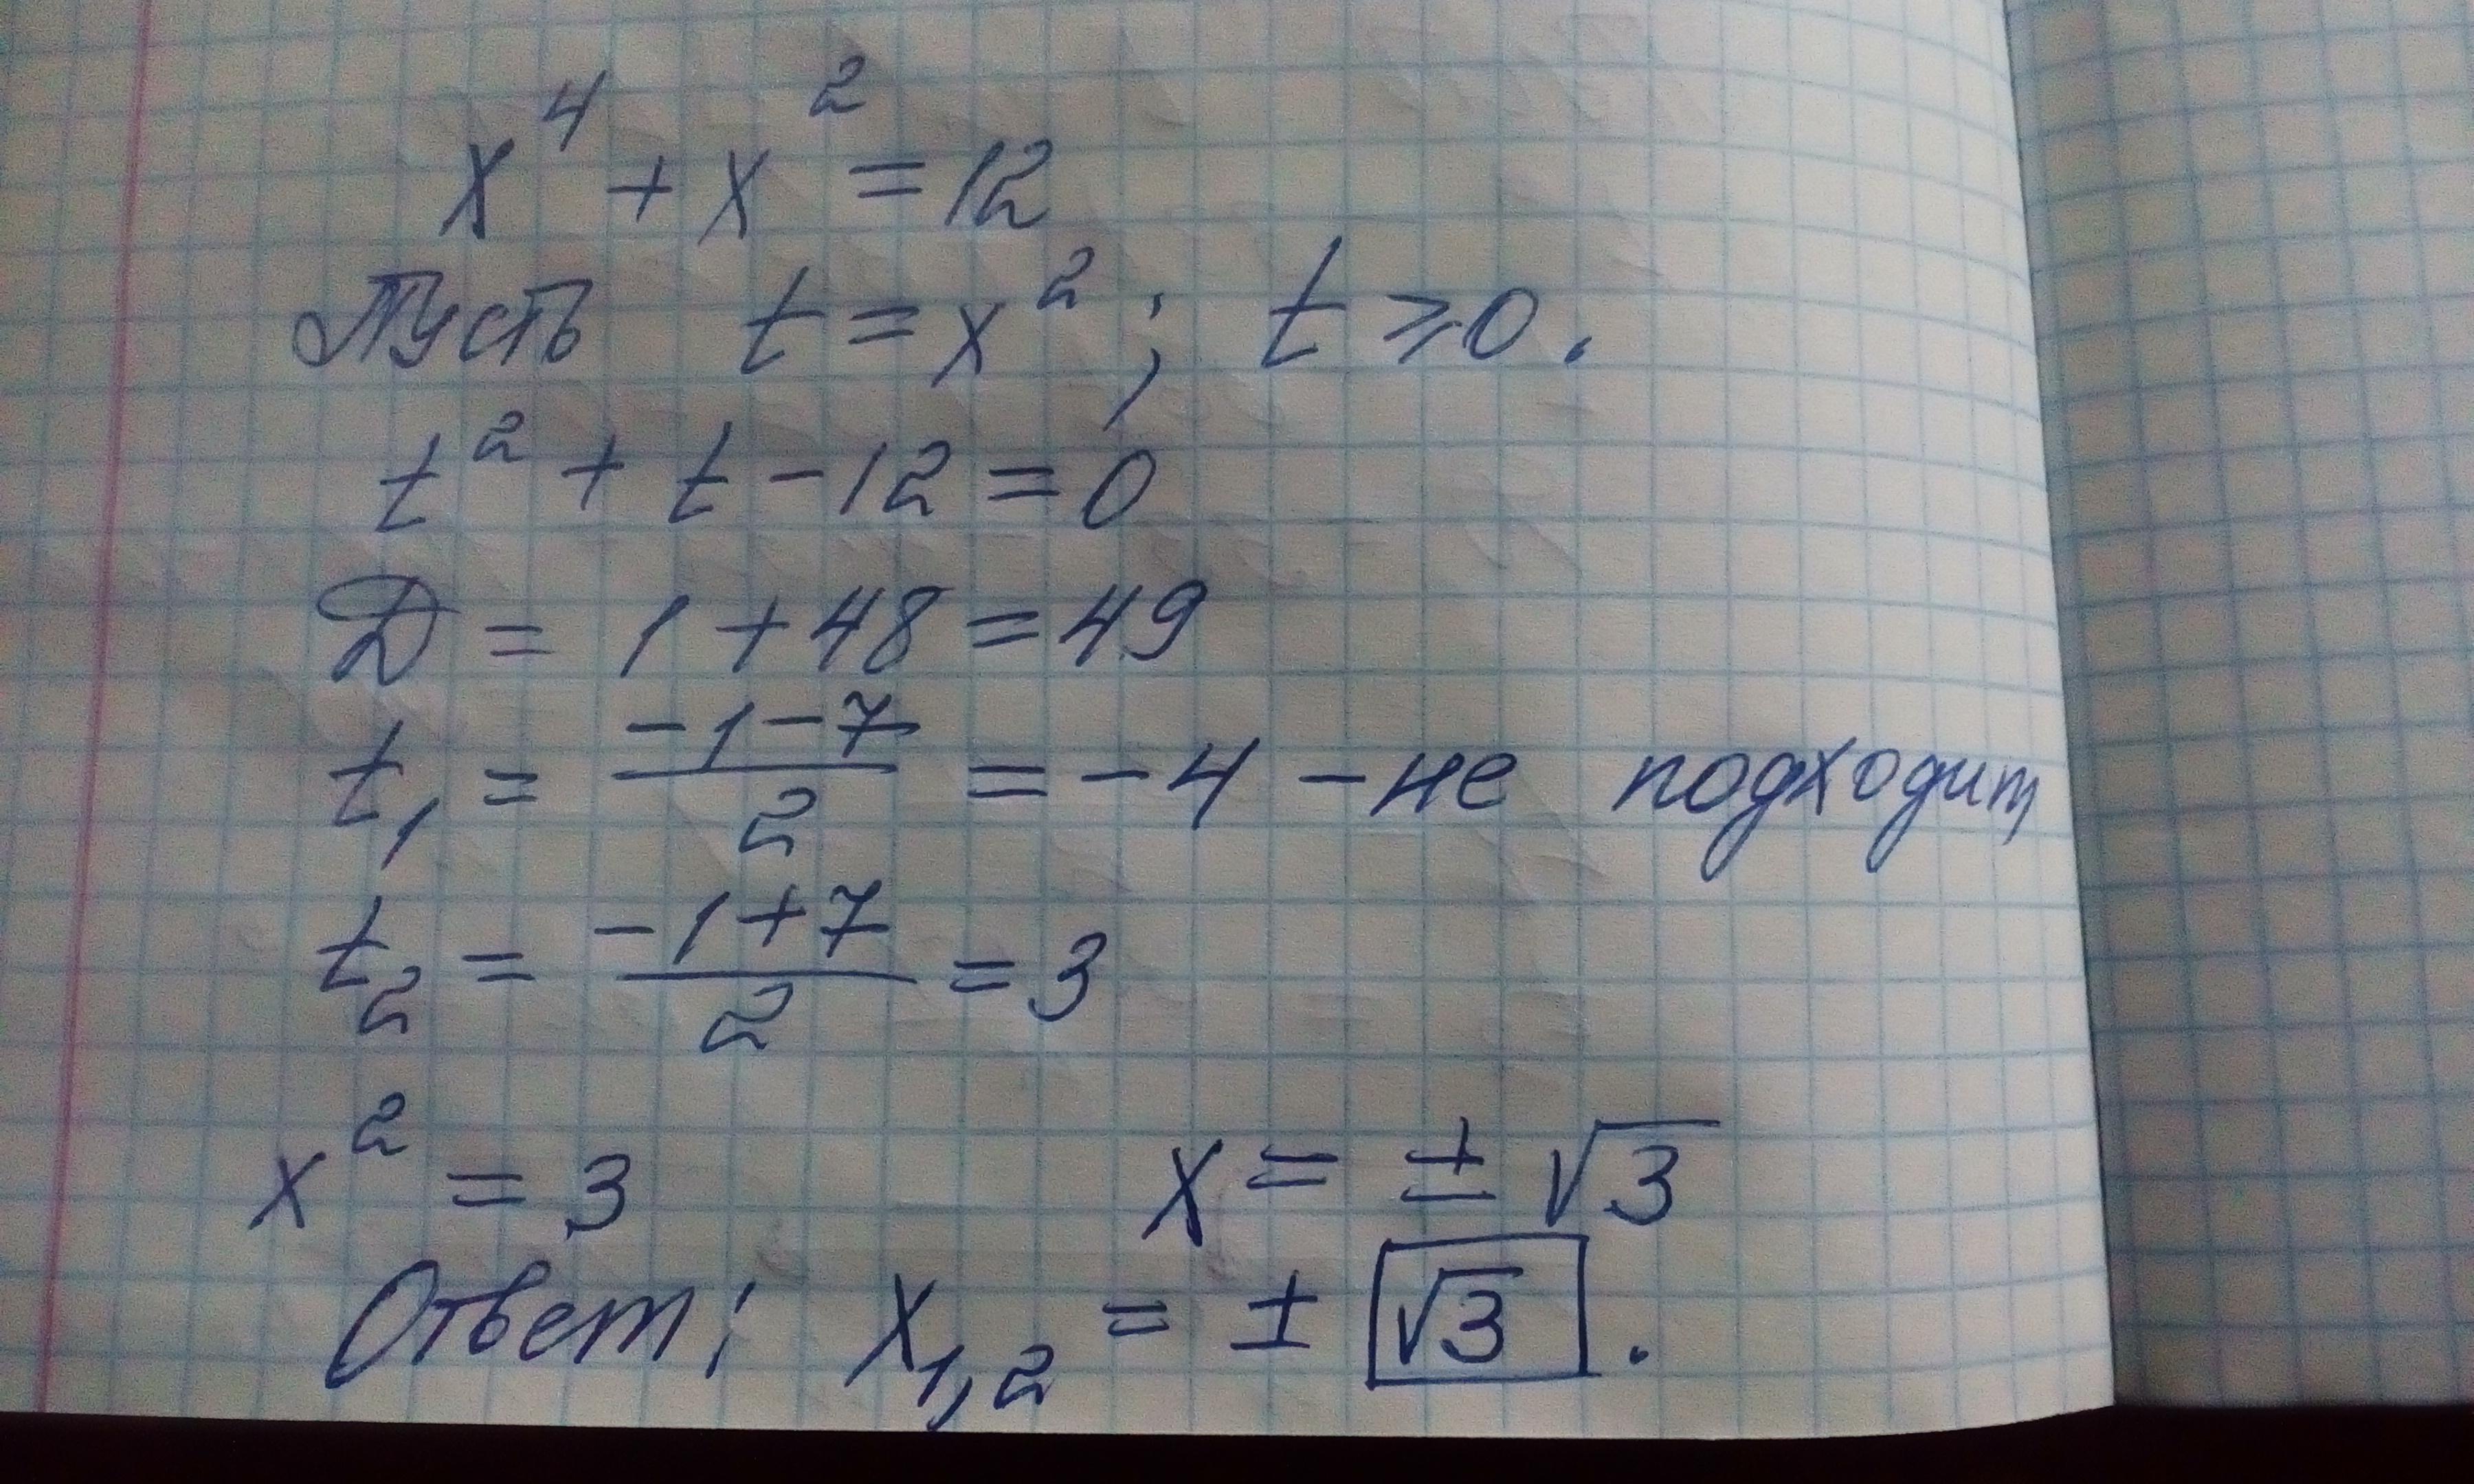 x⁴ + x² = 12
Пусть t = x²; t ⩾ 0.
t² + t - 12 = 0
D = 1 + 48 = 49
t₁ = (-1-7)/2 = -4 - не подходит
t₂ = (-1+7)/2 = 3
x² = 3 x = ± √3
Ответ: x₁,₂ = ± √3.